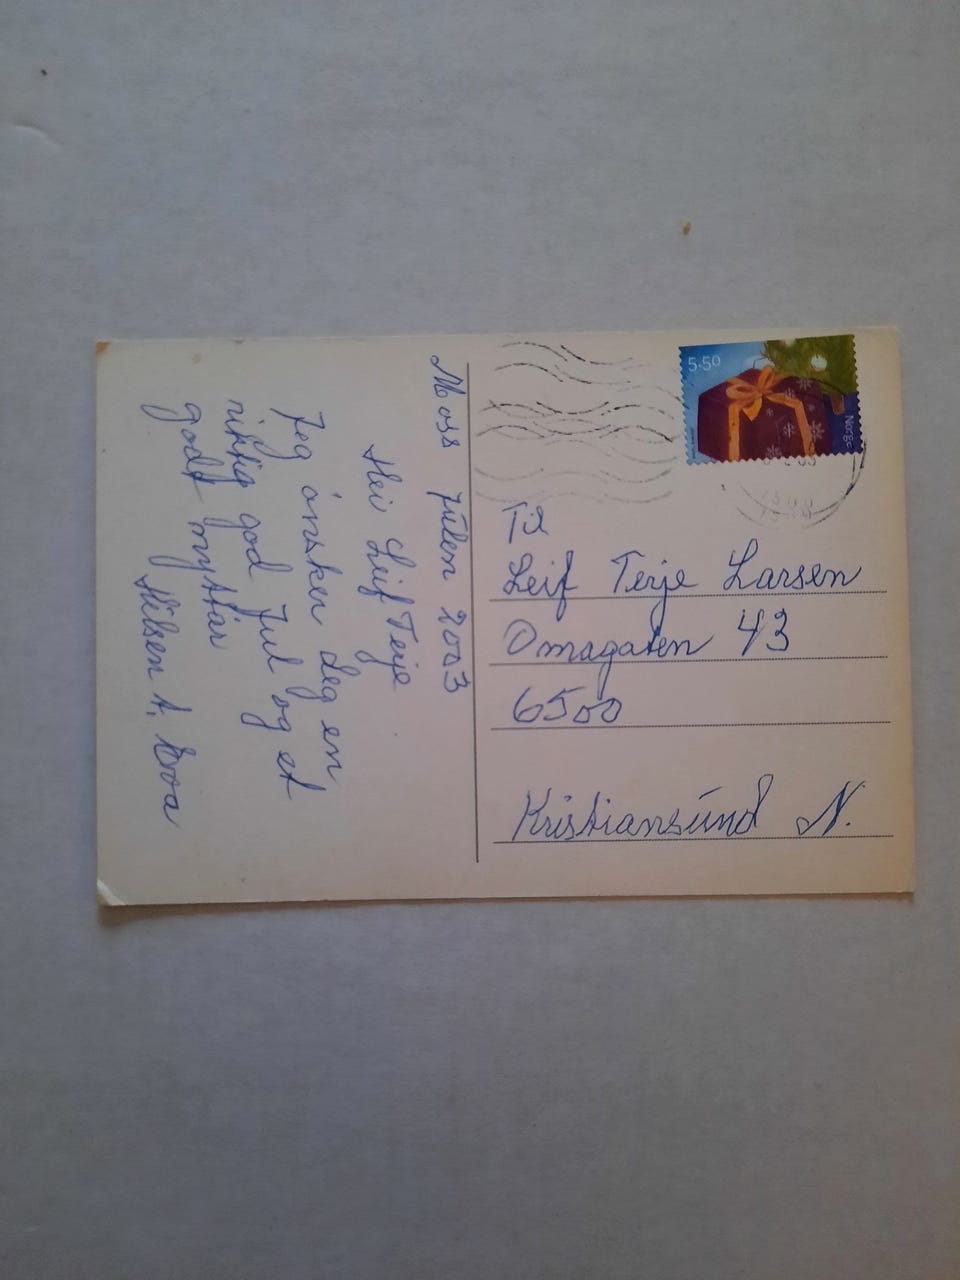 Moss Julen 2003
Hei Leif Terje
Jeg ønsker deg en
riktig god Jul og et
godt nyttår
Hilsen A. Moa
5.50
Norge
Til
Leif Terje Larsen
Omagaten 43
6500
Kristiansund N.